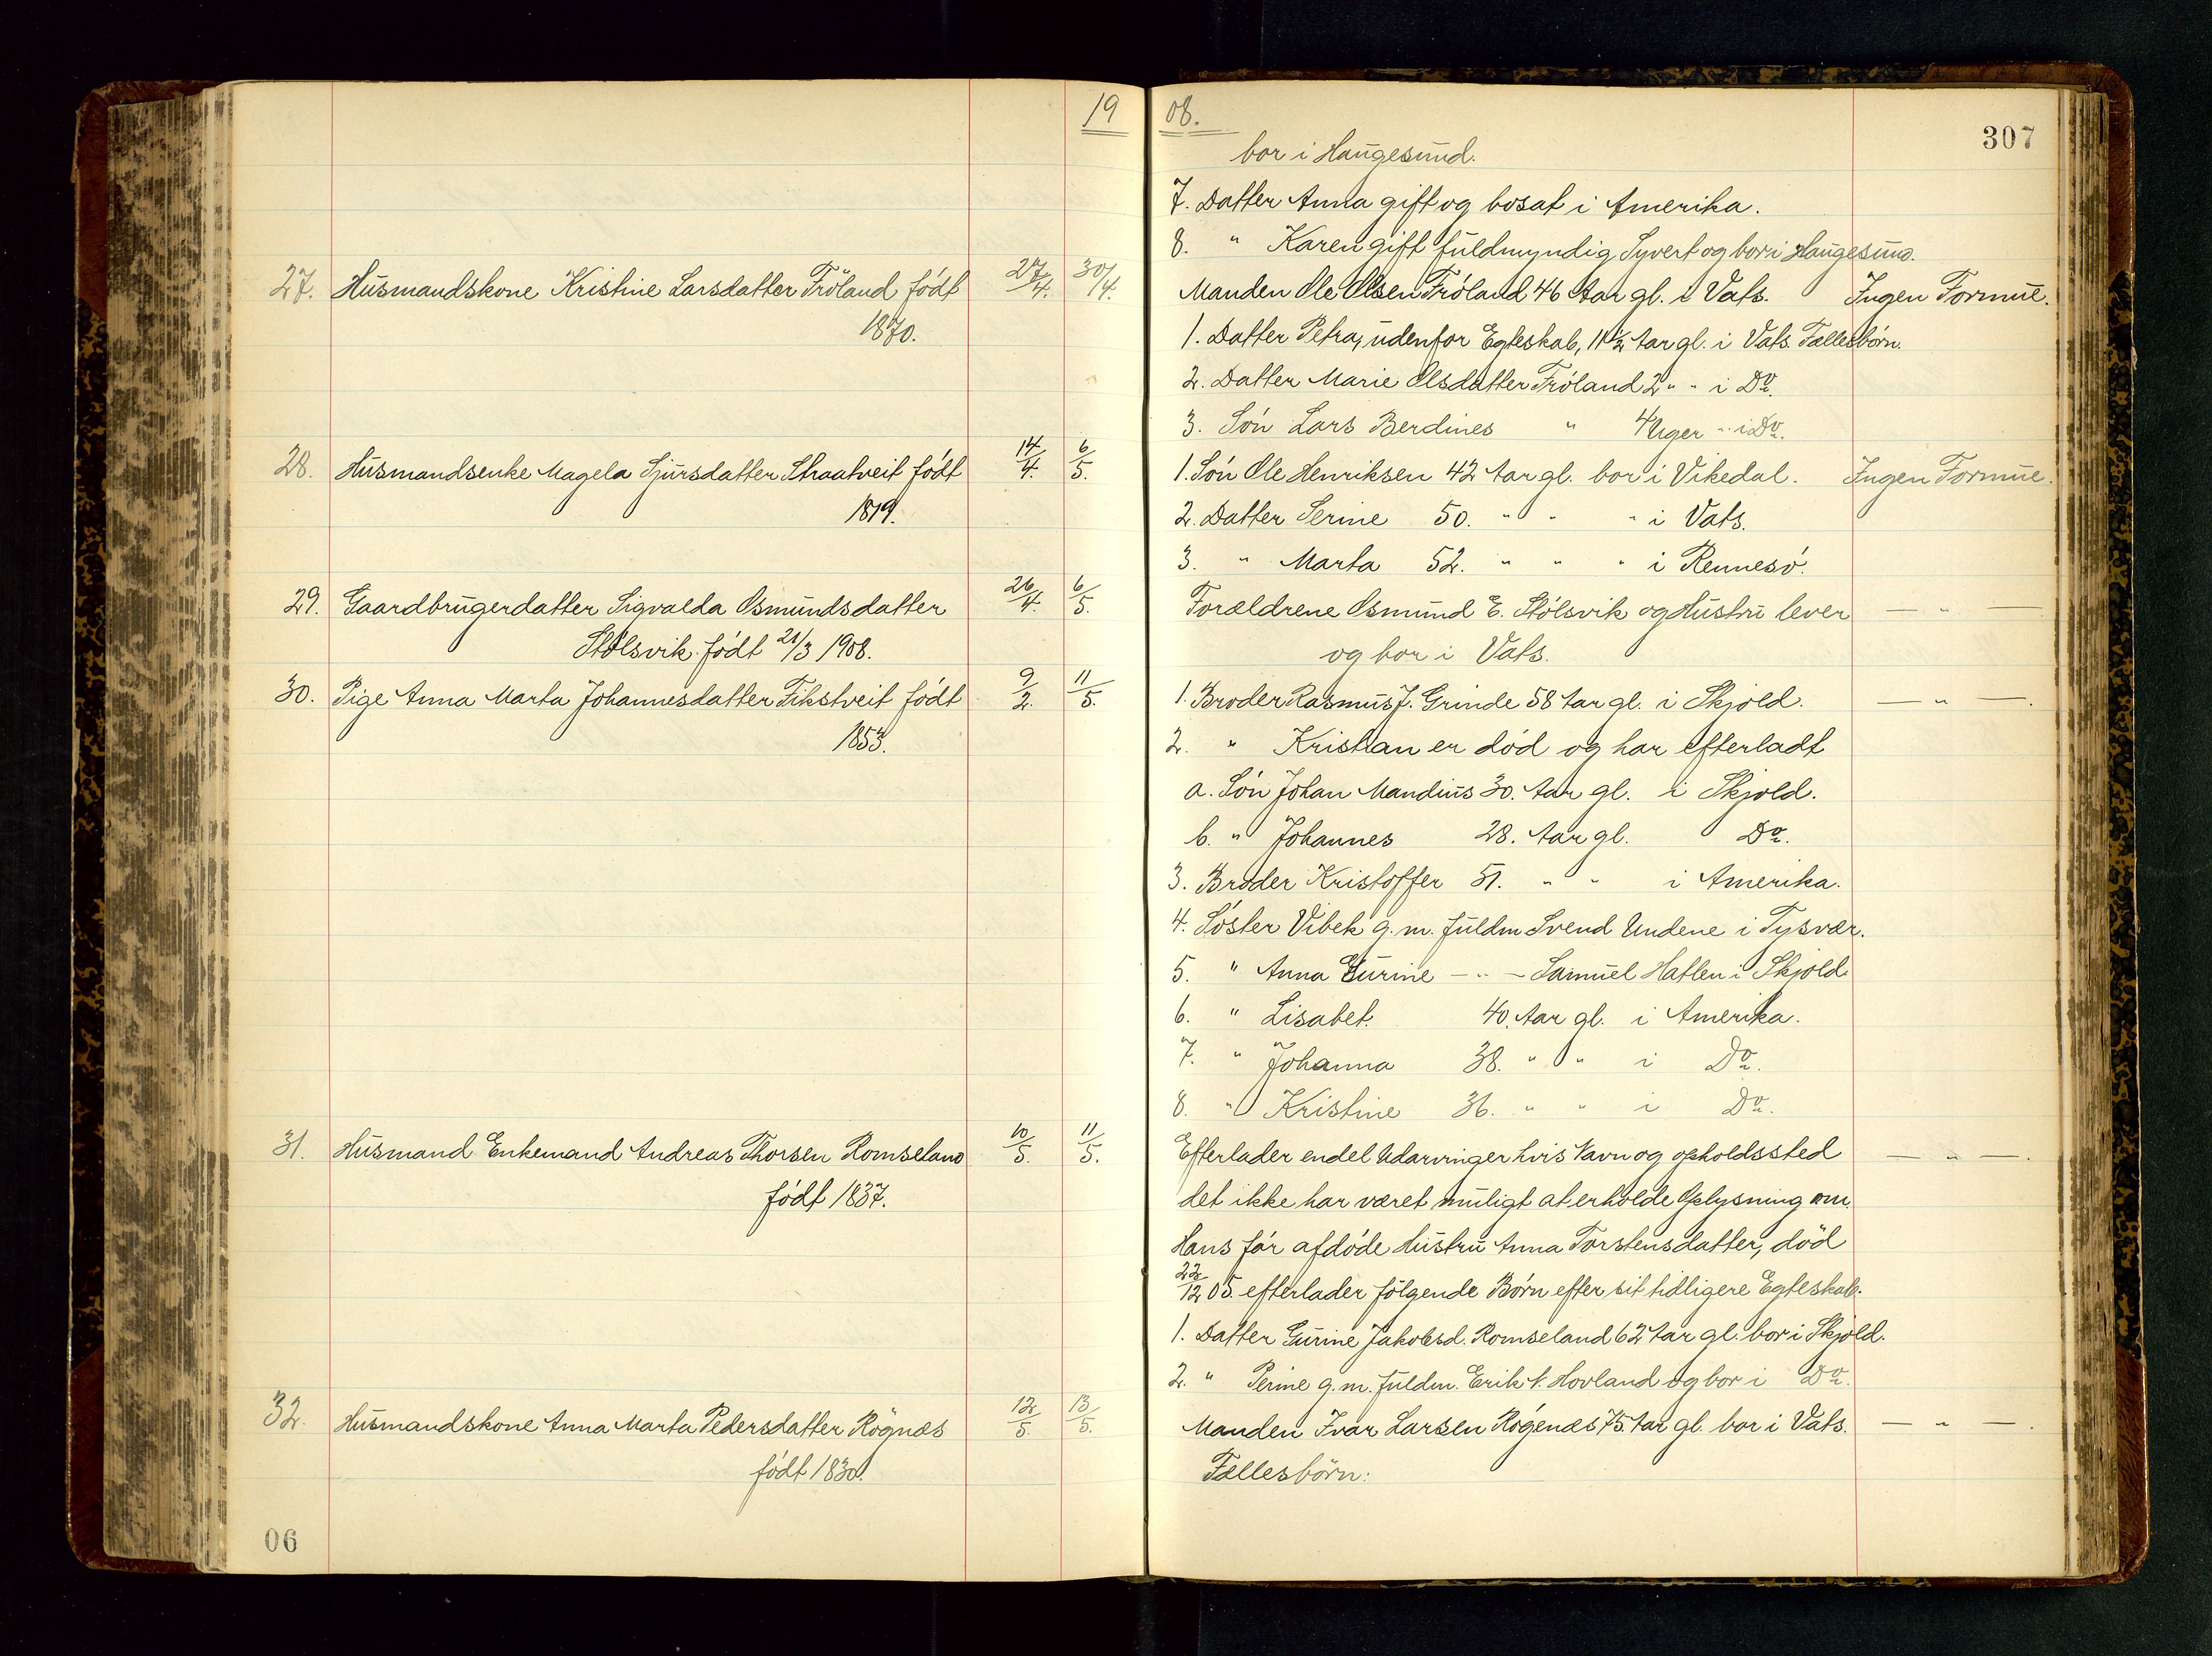 1908.
307
bor i Haugesund.
7. Datter Anna gift og bosat i Amerika.
8. " Karen gift fuldmyndig Syvert og bor i Haugesund.
27. Husmandskone Kristine Larsdatter Fröland födt 27/4. 30/4. Manden Ole Olsen Fröland 46 Aar gl. i Vats. Ingen Formue.
1870. 1. Datter Petra, udenfor Egteskab, 11 1/2 Aar gl. i Vats. Fællesbørn.
2. Datter Marie Olsdatter Fröland 2 " " i Do.
3. Søn Lars Berdines " 4 Uger " i Do.
28. Husmandsenke Magela Sjursdatter Straatveit födt 14/4. 6/5. 1. Søn Ole Henriksen 42 Aar gl. bor i Vikedal. Ingen Formue.
1819. 2. Datter Serine 50. " " " i Vats.
3. " Marta 52. " " " i Rennesø.
29. Gaardbrugerdatter Sigvalda Osmundsdatter 26/4. 6/5. Forældrene Osmund E. Stølsvik og Hustru lever — " —
Stølsvik født 21/3 1908. og bor i Vats.
30. Pige Anna Marta Johannesdatter Fikstveit födt 9/2. 11/5. 1. Broder Rasmus J. Grinde 58 Aar gl. i Skjold. — " — .
1853. 2. " Kristian er død og har efterladt
a. Søn Johan Mandius 30. Aar gl. i Skjold.
b. " Johannes 28. Aar gl. Do.
3. Broder Kristoffer 51. " " i Amerika.
4. Søster Vibek g. m. fuldm Svend Undene i Tysvær.
5. " Anna Gurine — " — Samuel Hatlen i Skjold.
6. " Lisabet. 40. Aar gl. i Amerika.
7. " Johanna 38. " " i Do.
8. " Kristine 36. " " i Do.
31. Husmand Enkemand Andreas Thorsen Romseland 10/5. 11/5. Efterlader endel Udarvinger hvis Navn og opholdssted — " — .
født 1837. det ikke har været muligt at erholde Oplysning om.
Hans før afdøde Hustru Anna Torstensdatter, död
22/12 05. efterlader følgende Børn efter sit tidligere Egteskab.
1. Datter Gurine Jakobsd. Romseland 62 Aar gl. bor i Skjold.
2. " Perine g. m. fuldm. Erik N. Hovland og bor i Do.
32. Husmandskone Anna Marta Pedersdatter Rögnæs 12/5. 13/5. Manden Ivar Larsen Røgenæs 75. Aar gl. bor i Vats. — " — .
født 1830. Fællesbörn:
06